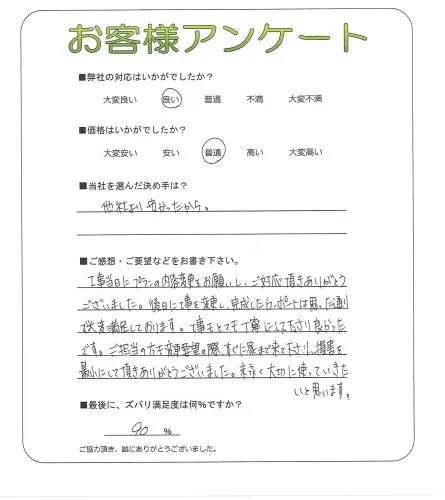 お客様アンケート
■弊社の対応はいかがでしたか？
大変良い 良い 普通 不満 大変不満
■価格はいかがでしたか？
大変安い 安い 普通 高い 大変高い
■当社を選んだ決め手は？
他社より安かったから。
■ご感想・ご要望などをお書き下さい。
工事当日にプランの内容変更をお願いし、ご対応頂きありがとう
ございました。後日に工事を変更し、完成したカーポートは思った通り
で大変満足しております。工事もとても丁寧にして下さり良かった
です。ご担当の方も変更要望の際、すぐに家まで来て下さり、損害を
最小にして頂きありがとうございました。末永く大切に使っていきた
いと思います。
■最後に、ズバリ満足度は何%ですか？
90 %
ご協力頂き、誠にありがとうございました。